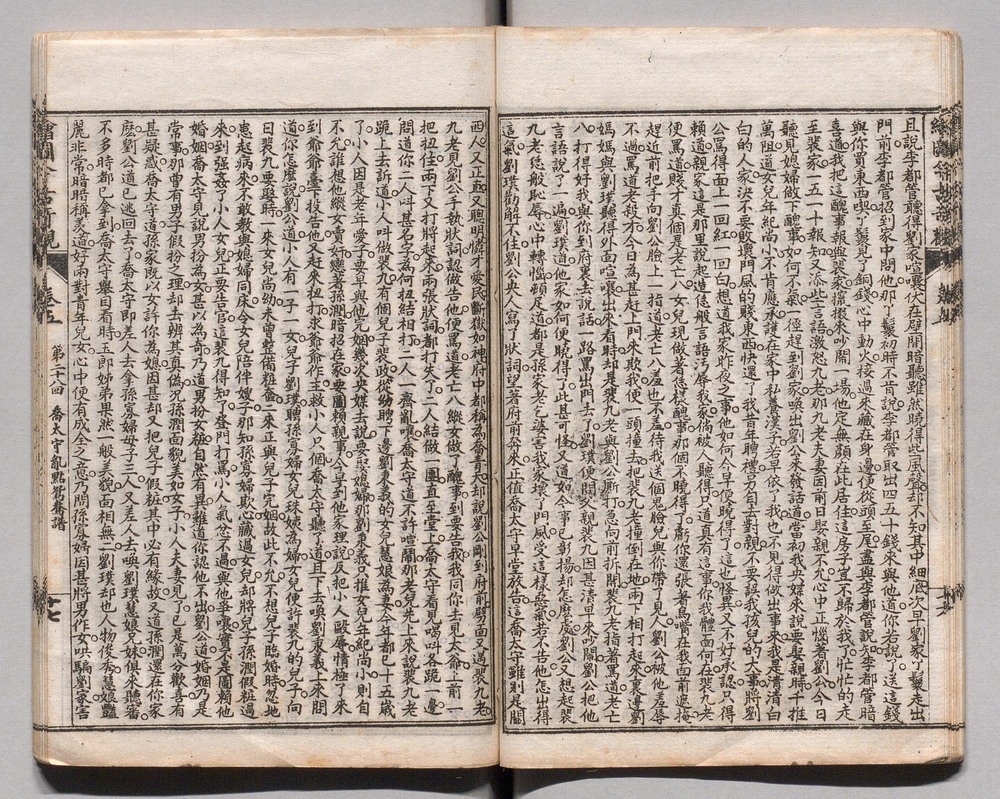 且說李都管聽得劉家喧嚷伏在壁間暗聽雖然曉得些風聲却不知其中細底次早劉家丫鬟走出
門前李都管招到家中問他那丫鬟初時不肯說李都管取出四五十錢來與他道你若說了送這錢
與你買東西喫丫鬟見了銅錢心中動火接過來藏在身邊便從頭至尾盡與李都管說知李都管暗
喜道我把這醜事報與裴家攛掇來吵鬧一場他定無顏在此居住這房子豈不歸於我了忙忙的走
至裴家一五一十報知又添些言語激惱九老那九老夫妻因前日娶親不允心中正惱著劉公今日
聽見媳婦做下醜事如何不氣一徑趕到劉家喚出劉公來發話道當初我央媒來說要娶親時千推
萬阻道女兒年紀尚小不肯應承護在家中私養漢子若早依了我也不見得做出事來我是清清白
白的人家決不要敗壞門風的賤東西快還了我昔年聘禮另自去對親不要誤我孩兒的大事將劉
公罵得面上一回紅一回白想道我家昨夜之事他如何今早便曉得了這也怪異又不好承認只得
賴道親家這是那里說起造恁般言語污辱我家倘被人聽得只道真有這事你我體面何在裴九老
便罵道賤才真個是老亡八女兒現做著恁樣醜事那個不曉得了虧你還張著鳥嘴在我面前遮掩
趕近前把手向劉公臉上一掀道老亡八羞也不羞待我送個鬼臉兒與你帶了見人劉公被他羞辱
不過罵道老殺才今日為甚趕上門來欺我便一頭撞去把裴九老撞倒在地兩下相打起來裏邊劉
媽媽與劉璞聽得外面喧嚷出來看時却是裴九老與劉公廝打急向前拆開裴九老指著罵道老亡
八打得好我與你到府裏去說話一路罵出門去了劉璞便問父親裴九因甚清早來吵鬧劉公把他
言語說了一遍劉璞道他家如何便曉得了此甚可怪又道如今事已彰揚却怎麼處劉公又想起裴
九老恁般恥辱心中轉惱頓足道都是孫家老乞婆害我家壞了門風受這樣惡氣若不告他怎出得
這氣劉璞勸解不住劉公央人寫了狀詞望著府前奔來正值喬太守早堂放告這喬太守雖則是關
西人又正直又聰明憐才愛民斷獄如神府中都稱為喬青天却說劉公剛到府前劈面又遇裴九老
九老見劉公手執狀詞認做告他便罵道老亡八縱女做了醜事到要告我我同你去見太爺上前一
把扭住兩下又打將起來兩張狀詞都打失了二人結做一團直至堂上喬太守看見喝叫各跪一邊
問道你二人叫甚名字為何扭結相打二人一齊亂嚷喬太守道不許喧鬧那老兒先上來說裴九老
跪上去訴道小人叫做裴九有個兒子裴政從幼聘下邊劉秉義的女兒慧娘為妻今年都已十五歲
了小人因是老年愛子要早與他完姻幾次央媒去說要娶媳婦那劉秉義只推女兒年紀尚小則自
不允誰想他縱女賣奸戀著孫潤暗招在家要圖賴親事今早到他家理說反把小人毆辱情極了來
到爺爺臺下投告他又起來扭打求爺爺作主救小人只個喬太守聽了道且下去喚劉秉義上來問
道你怎麼說劉公道小人有一子一女兒子劉璞聘孫寡婦女兒珠姨為婦女兒便許裴九的兒子向
日裴九要娶時一來女兒尚幼未曾整備粧奩二來正與兒子完姻故此不允不想兒子臨婚時忽地
患起病來不敢教與媳婦同房令女兒陪伴嫂子那知孫寡婦欺心藏過女兒却將兒子孫潤假粧過
來到強姦了小人女兒正要告官這裴九得知了登門打罵小人氣忿不過與他爭嚷實不是圖賴他
婚姻喬太守見說男扮為女甚以為奇乃道男扮女粧自然有異難道你認他不出劉公道婚姻乃是
常事那曾有男子假扮之理却去辨其真偽況孫潤面貌美如女子小人夫妻見了已是萬分歡喜有
甚疑惑喬太守道孫家既以女許你為媳因甚却又把兒子假粧其中必有緣故又道孫潤還在你家
麼劉公道已逃回去了喬太守即差人去拿孫寡婦母子三人又差人去喚劉璞慧娘兄妹俱來聽審
不多時都已拿到喬太守舉目看時玉郎姊弟果然一般美貌面相無二劉璞却也人物俊秀慧娘艷
麗非常暗暗稱羨道好兩對青年兒女心中便有成全之意乃問孫寡婦因甚將男作女哄騙劉家害
第二八回 喬太守亂點鴛鴦譜
卷五
十七